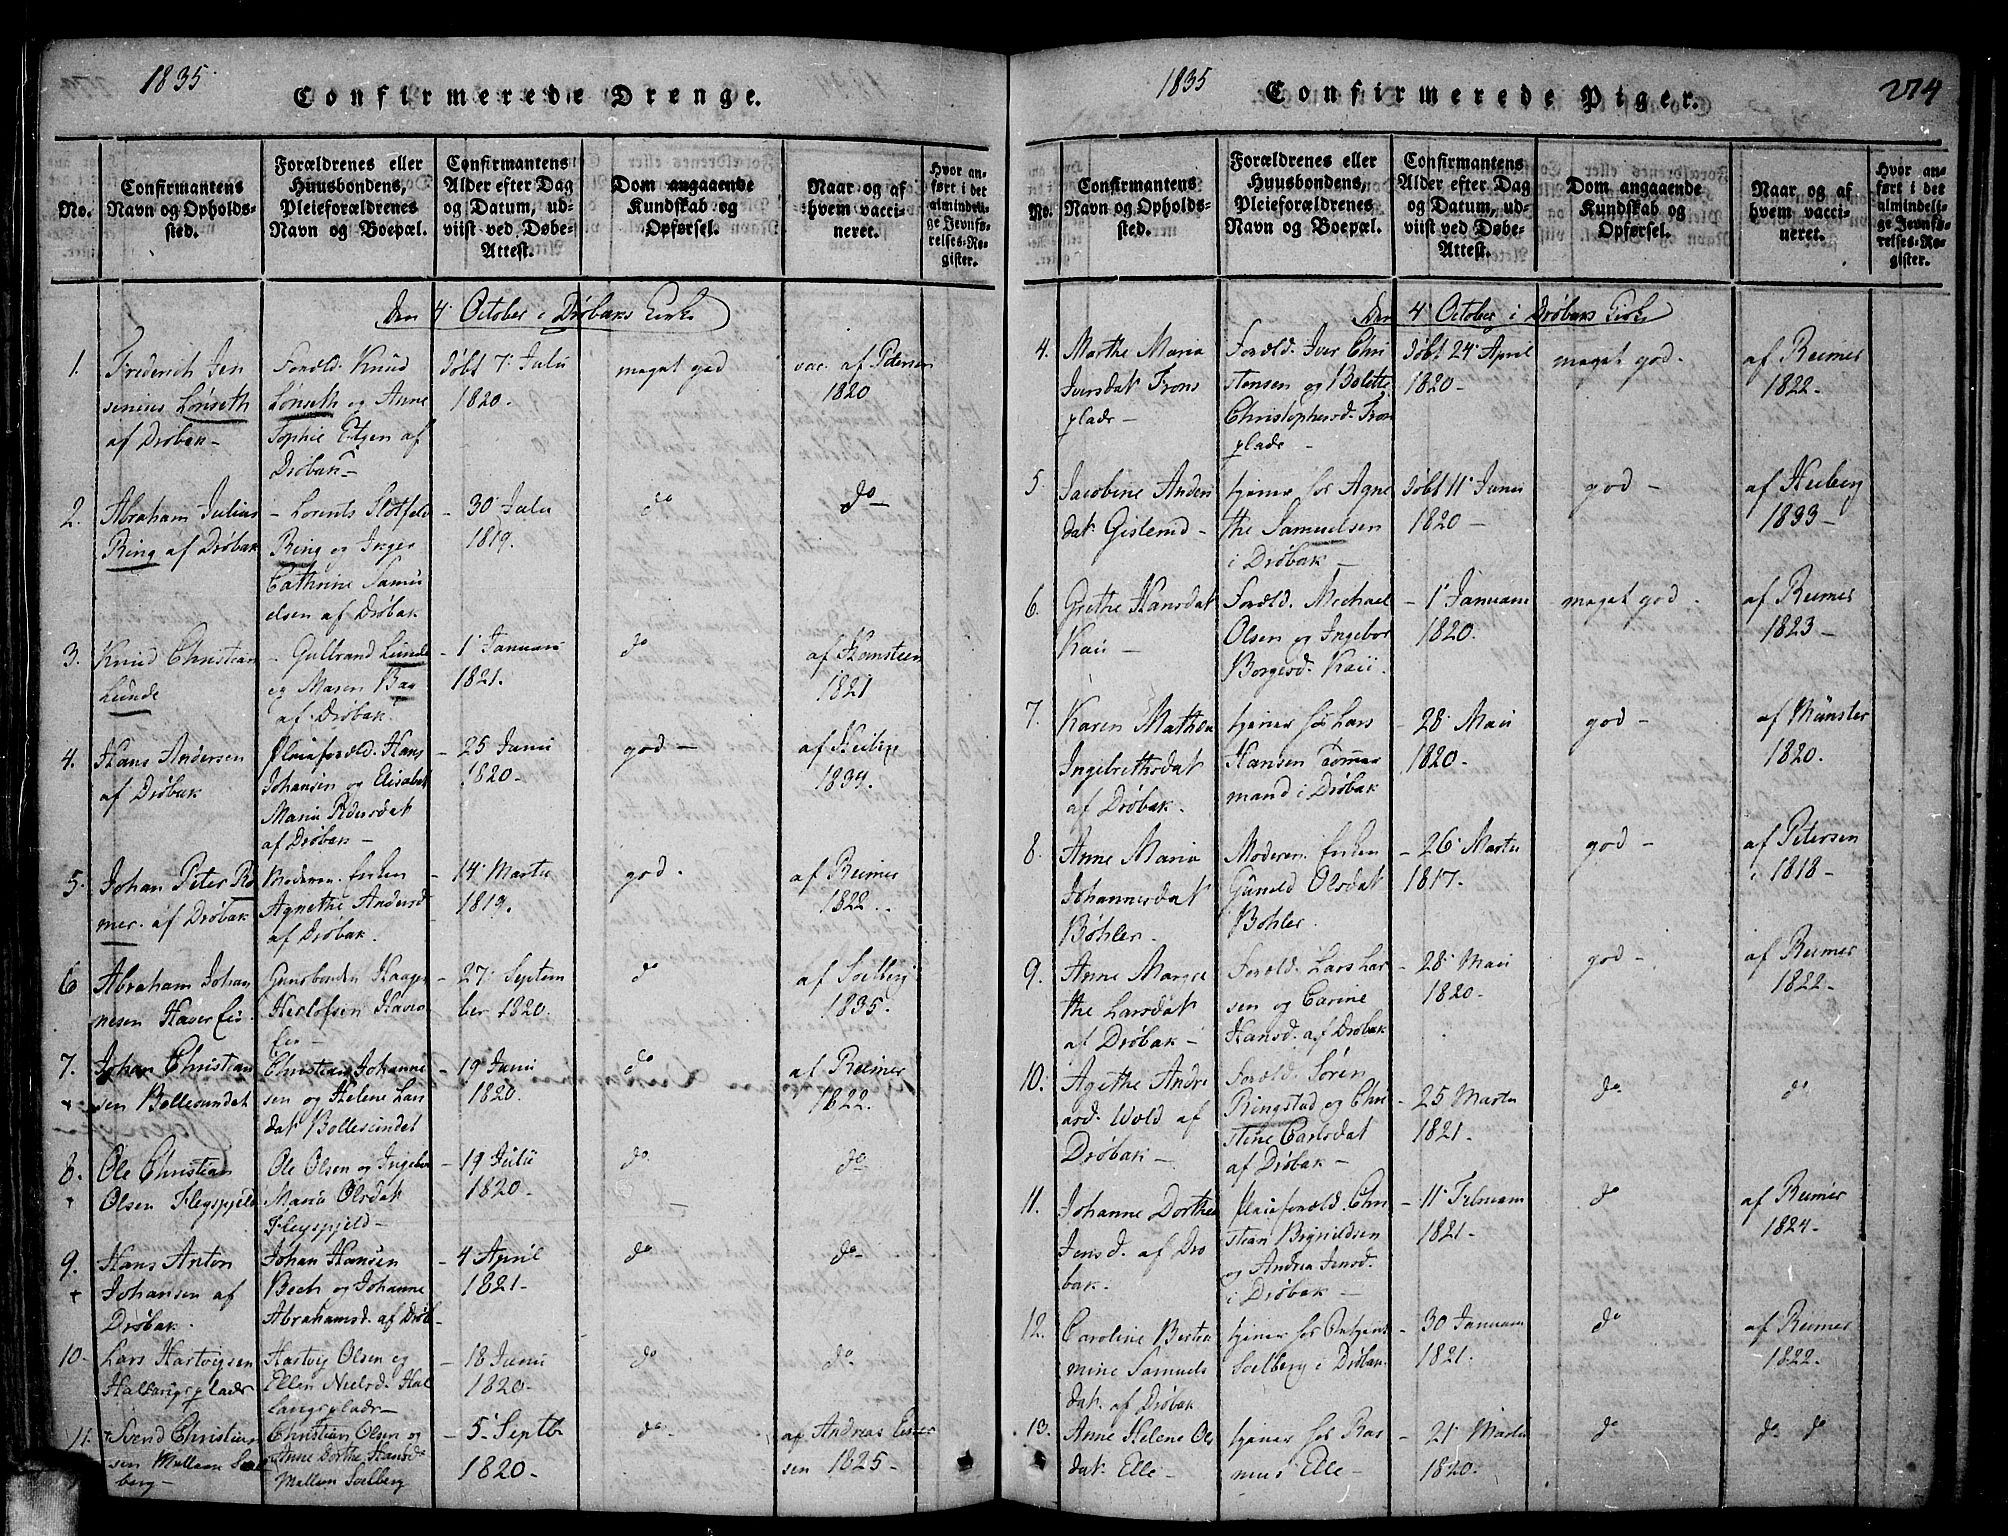 1835
Confirmerede Drenge.
No.
Confirmantens
Navn og Opholds-
sted.
Forældrenes eller
Huusbondens,
Pleieforældrenes
Navn og Boepæl.
Confirmantens
Alder efter Dag
og Datum, ud-
viist ved Døbe-
Attest.
Dom angaaende
Kundskab og
Opførsel.
Naar og af
hvem vacci-
neret.
Hvor an-
ført i det
almindeli-
ge Jevnfø-
relses-Re-
gister.
Den 4 October i Drøbaks Kirke
1. Frederich Jen
senius Lønseth
af Drøbak
Foræld. Knud
Lønseth og Anne
Sophie
af
Drøbak
døbt 7 Julii
1820.
meget god
vac. af Petersen
1820
2. Abraham Julius
Ring af Drøbak
- Lorents
Ring og Inger
Cathrine Samu
elsen af Drøbak
- 30 Julii
1819.
do
do
3. Knud Christian
Lunde
- Gulbrand Lunde
og Maren
af Drøbak.
- 1 Januarii
1821.
do
af Hansteen
1821
4. Hans Andersen
af Drøbak
Pleieforæld. Hans
Johansen og Elisabet
Maria Pedersdat
af Drøbak -
- 25 Junii
1820-
god -
af Heiberg
1834.
5. Johan Peter Rei
mer. af Drøbak
Moderen. Enken
Agnethe Andersd
af Drøbak.
- 14 Martii
1819.
god.
af Reimer
1822.
6 Abraham Johan
nesen
Huusbonden Haagen
Herlofsen
- 27 Septem
ber 1820.
do
af Solberg
1835.
7. Johan Christian
sen Bollesundet
Christian Johanne
sen og Helene Lars
dat Bollesundet
- 19 Junii
1820.
do
af Reimer
1822.
8. Ole Christian
Olsen Flegspjeld
Ole Olsen og Ingebor
Maria Olsdat
Flegspjeld-
- 19 Julii
1820-
do
do
9. Hans Anton
Johansen af
Drøbak.
Johan Hansen
Bech og Johanne
Abrahamsd. af Drøb
- 4 April
1821-
do
do
10- Lars Hartvigsen
Hallangsplads
Hartvig Olsen og
Ellen Nielsd. Hal
langsplads-
- 18 Junii
1820-
do
do-
11. Svend Christian
sen Mellem Sol
berg-
Christian Olsen og
Anne Dorthe Hansd
Mellem Solberg
- 5. Septbr
1820-
do-
af Andreas
sen 1825-
1835
Confirmerede Piger.
274
No.
Confirmantens
Navn og Opholds-
sted.
Forældrenes eller
Huusbondens,
Pleieforældrenes
Navn og Boepæl.
Confirmantens
Alder efter Dag
og Datum, ud-
viist ved Døbe-
Attest.
Dom angaaende
Kundskab og
Opførsel.
Naar og af
hvem vacci-
neret.
Hvor an-
ført i det
almindeli-
ge Jevnfø-
relses-Re-
gister.
Den 4 October i Drøbaks Kirke
4. Marthe Maria
Iversdat Trons
plads -
Foræld. Iver Chri
stensen og Bolette
Christophersd. Tron
plads -
døbt 24 April
1820-
meget god.
af Reimer
1822-
5. Jacobine Anders
dat.
tjener hos Agne
the Samuelsen
i Drøbak -
døbt 11 Junii
1820-
god -
af Heiberg
1833-
6. Grethe Hansdat
Kaii -
Foræld. Michael
Olsen og Ingebor
Borgersd. Kaii.
- 1 Januarii
1820.
meget god.
af Reimer
1823-
7. Karen Mathea
Ingebrethsdat
af Drøbak.
tjener hos Lars
Hansen Tømmer
mand i Drøbak
- 28 Maii
1820-
god -
af Münster
1820.
8. Anne Maria
Johannesdat
Bøhler.
Moderen. Enken
Gunild Olsdat
Bøhler.
- 26 Martii
1817.
god -
af Petersen
i 1818-
9. Anne Margre
the Larsdat
af Drøbak -
Foræld. Lars Lar
sen og Carine
Hansd. af Drøbak
- 28 Maii
1820.
god -
af Reimer
1822-
10. Agethe Andre
asd. Wold af
Drøbak -
Foræld. Søren
Ringstad og Chri
stine Carlsdat
af Drøbak -
- 25 Martii
1821-
do
do
11. Johanne Dorthea
Jensd. af Drø
bak.
Pleieforæld. Chri
stian Brynildsen
og Andrea Jensd.
i Drøbak -
- 11 Februarii
1821.
do
af Reimer
1824-
12. Caroline Berta
mine Samuels
dat. af Drøbak
tjener hos
Solberg i Drøbak
- 30 Januarii
1821.
do
af Reimer
1822-
13. Anne Helene Ols
dat. Elle -
tjener hos Ras
mus Elle -
- 21 Martii
1820.
do
do do